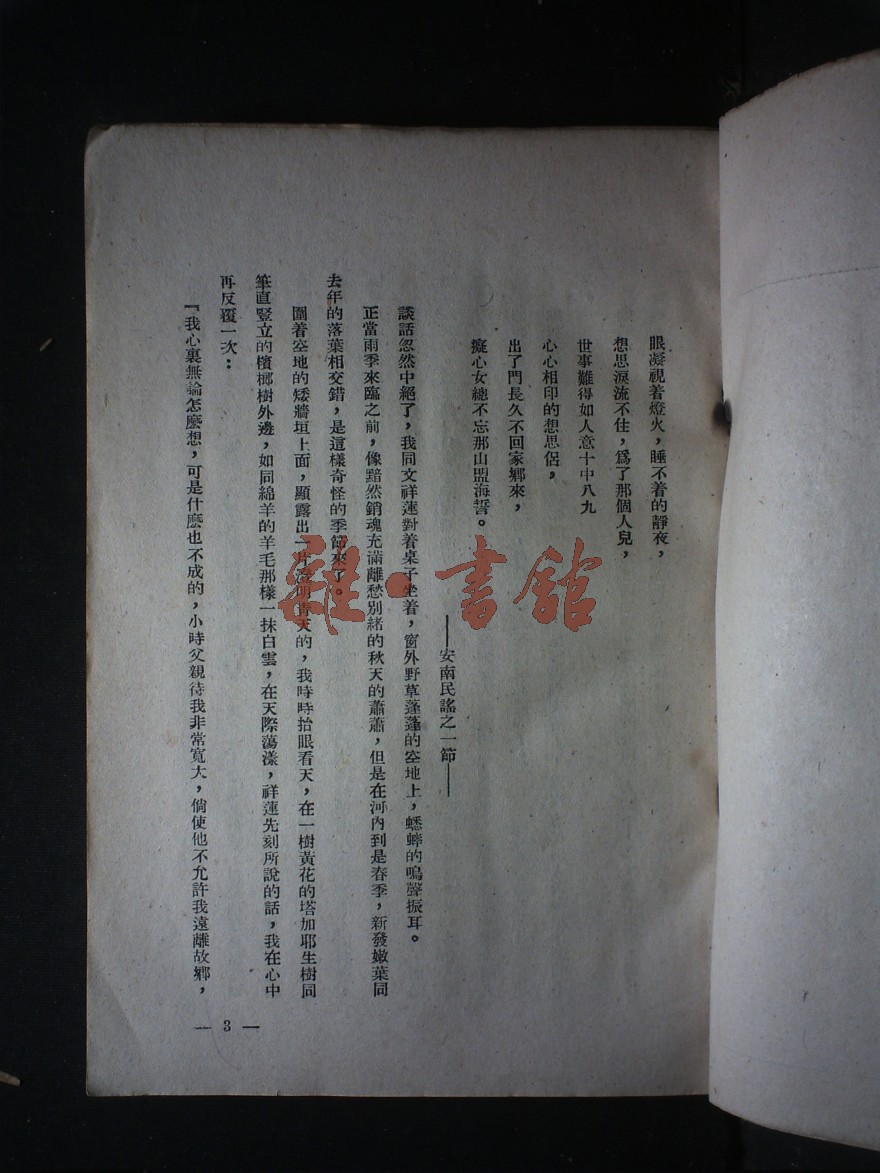 眼凝視着燈火，睡不着的靜夜，
想思淚流不住，爲了那個人兒，
世事難得如人意十中八九
心心相印的想思侶，
出了門長久不回家鄉來，
癡心女總不忘那山盟海誓。
——安南民謠之一節——
談話忽然中絕了，我同文祥蓮對着桌子坐着，窗外野草蓬蓬的空地上，蟋蟀的鳴聲振耳。
正當雨季來臨之前，像黯然銷魂充滿離愁別緒的秋天的蕭蕭，但是在河內到是春季，新發嫩葉同
去年的落葉相交錯，是這樣奇怪的季節來了。
圍着空地的矮牆垣上面，顯露出一片澄明青天的，我時時抬眼看天，在一樹黃花的塔加耶生樹同
筆直豎立的檳榔樹外邊，如同綿羊的羊毛那樣一抹白雲，在天際蕩漾，祥蓮先刻所說的話，我在心中
再反覆一次：
『我心裏無論怎麽想，可是什麽也不成的，小時父親待我非常寬大，倘使他不允許我遠離故鄉，
— 3 —
雜·書館